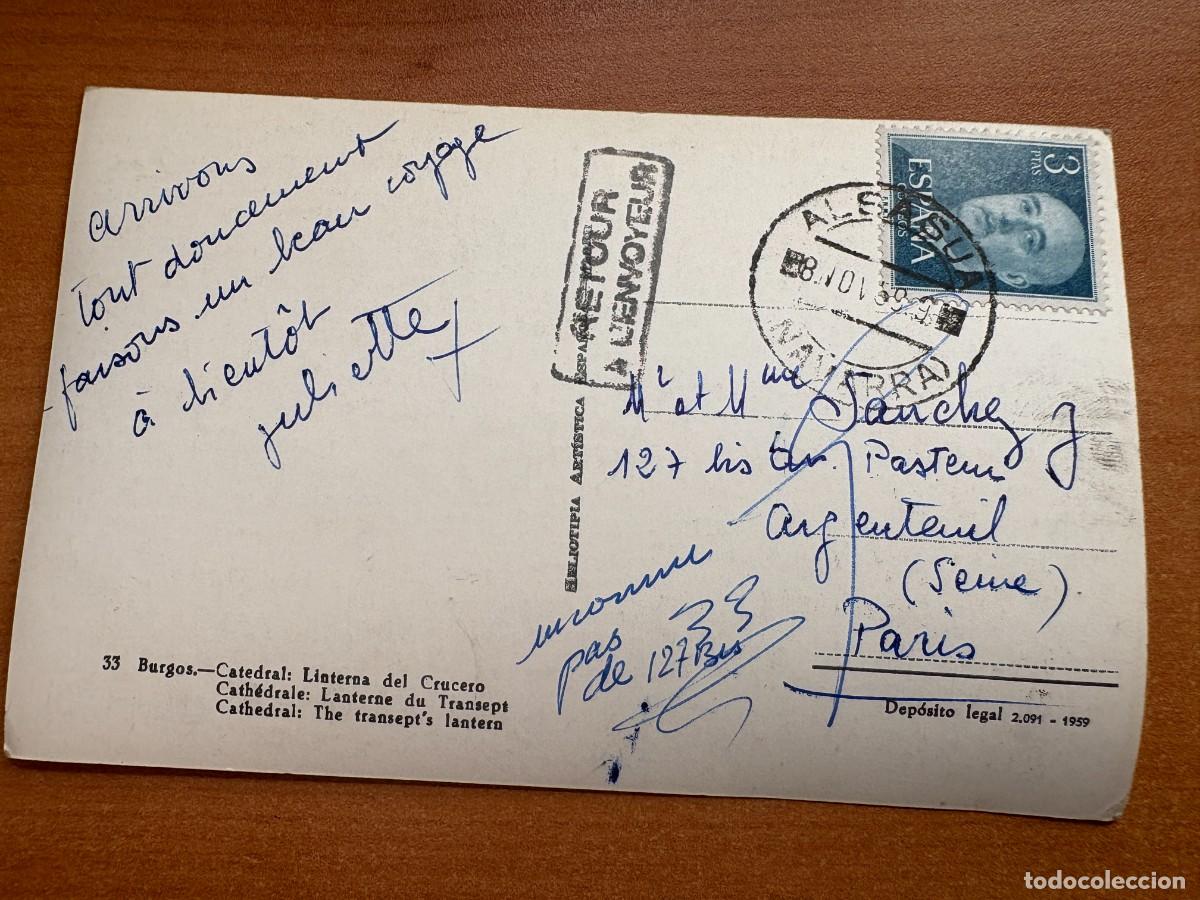 arrivons
tout doucement
faisons un beau voyage
à bientôt
juliette
RETOUR
A L'ENVOYEUR
3
PTAS
ESPAÑA
CORREOS
ALSASUA
(NAVARRA)
HELIOTIPIA ARTÍSTICA ESPAÑOLA
Mr et Mme Sanchez J
127 bis av. Pasteur
Argenteuil
(Seine)
Paris
inconnu
pas
de 127 Bis
33 Burgos.—Catedral: Linterna del Crucero
Cathédrale: Lanterne du Transept
Cathedral: The transept's lantern
Depósito legal 2.091 - 1959
todocoleccion